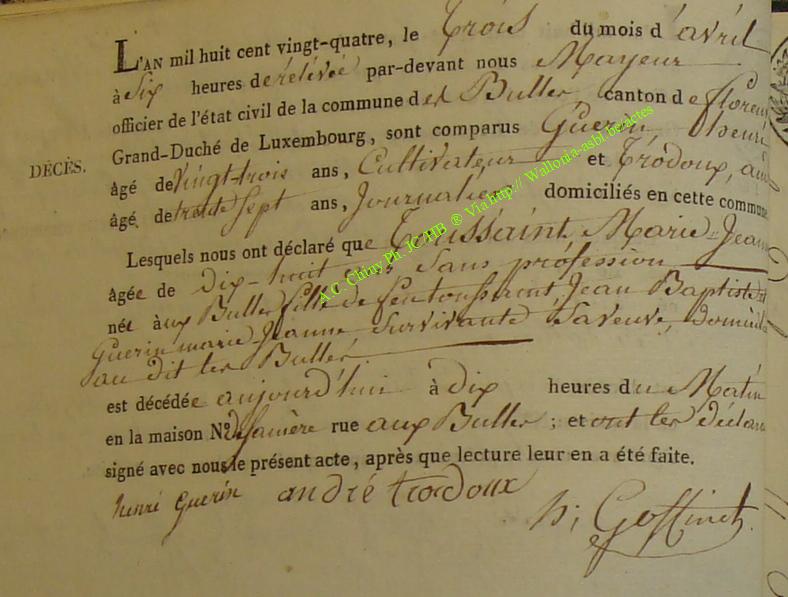 L'AN mil huit cent vingt-quatre, le trois du mois d'avril
à Six heures de rélévée par-devant nous Mayeur
officier de l'état civil de la commune des Bulles canton de floren
Grand-Duché de Luxembourg, sont comparus Guerin, henri
DÉCÈS.
âgé de vingt-trois ans, Cultivateur et trodoux, an
âgé de trente Sept ans, Journalier domiciliés en cette commune
Lesquels nous ont déclaré que Toussaint, Marie-Jean
âgée de Dix-huit ans Sans profession
née aux Bulles fille de feu toussaint, Jean Baptiste et
Guerin marie Jeanne Survivante, Saveuve, domicile
au dit les Bulles
est décédée aujourd'hui à dix heures du Matin
en la maison N.º de Sa mère rue aux Bulles ; et ont les déclan
signé avec nous le présent acte, après que lecture leur en a été faite.
henri guerin andré trodoux h; Goffinet
A.C. Chiny Ph. JC MB ® Via http:// Wallonia-asbl.be/actes